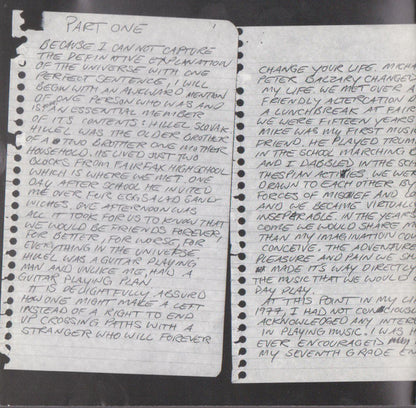 PART ONE
BECAUSE I CAN NOT CAPTURE
THE DEFINATIVE EXPLANATION
OF THE UNIVERSE WITH ONE
PERFECT SENTENCE, I WILL
BEGIN WITH AN AWKWARD MENTION
OF ONE PERSON WHO WAS AND
IS AN ESSENTIAL MEMBER
OF ITS CONTENTS: HILLEL SLOVAK
HILLEL WAS THE OLDER BROTHER
OF A TWO BROTHER ONE MOTHER
HOUSEHOLD. HE LIVED JUST TWO
BLOCKS FROM FAIRFAX HIGH SCHOOL
WHICH IS WHERE WE MET. ONE
DAY AFTER SCHOOL HE INVITED
ME OVER FOR EGG SALAD SAND
WICHES. ONE AFTERNOON WAS
ALL IT TOOK FOR US TO KNOW THAT
WE WOULD BE FRIENDS FOREVER,
FOR BETTER, FOR WORSE, FOR
EVERYTHING IN THE UNIVERSE.
HILLEL WAS A GUITAR PLAYING
MAN AND UNLIKE ME, HAD A
GUITAR PLAYING PLAN
IT IS DELIGHTFULLY ABSURD
HOW ONE MIGHT MAKE A LEFT
INSTEAD OF A RIGHT TO END
UP CROSSING PATHS WITH A
STRANGER WHO WILL FOREVER
CHANGE YOUR LIFE. MICHA
PETER BALZARY CHANGED
MY LIFE. WE MET OVER A
FRIENDLY ALTERCATION D
A LUNCHBREAK AT FAIR
WE WERE FIFTEEN YEARS
MIKE WAS MY FIRST MUSI
FRIEND. HE PLAYED TRUM
IN THE SCHOOL MARCHING
AND I DABBLED IN THE SC
THESPIAN ACTIVITIES. WE WER
DRAWN TO EACH OTHER BY
FORCES OF MISCHIEF AND
AND WE BECAME VIRTUALL
INSEPERABLE. IN THE YEAR
COME WE WOULD SHARE M
THAN MY IMAGINATION COU
CONCEIVE. THE ADVENTURE
PLEASURE AND PAIN WE SH
MADE ITS WAY DIRECTLY
THE MUSIC THAT WE WOULD
DAY PLAY.
AT THIS POINT IN MY
1977, I HAD NOT CONSCIOUSL
ACKNOWLEDGED ANY INTER
IN PLAYING MUSIC. I WAS
EVER ENCOURAGED
MY SEVENTH GRADE EN